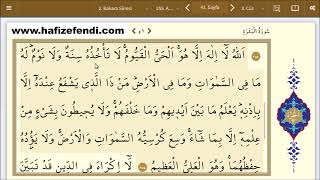 2. Bakara Sûresi
41. Sayfa
3. Cüz
www.hafizefendi.com
سُورَةُ الْبَقَرَةِ
اَللّٰهُ لَٓا اِلٰهَ اِلَّا هُوَۚ اَلْحَيُّ الْقَيُّومُۚ لَا تَأْخُذُهُ سِنَةٌ وَلَا نَوْمٌۜ لَهُ
مَا فِي السَّمٰوَاتِ وَمَا فِي الْاَرْضِۜ مَنْ ذَا الَّذ۪ي يَشْفَعُ عِنْدَهُٓ اِلَّا
بِاِذْنِه۪ۜ يَعْلَمُ مَا بَيْنَ اَيْد۪يهِمْ وَمَا خَلْفَهُمْۚ وَلَا يُح۪يطُونَ بِشَيْءٍ مِنْ
عِلْمِه۪ٓ اِلَّا بِمَا شَٓاءَۚ وَسِعَ كُرْسِيُّهُ السَّمٰوَاتِ وَالْاَرْضَۚ وَلَا يَؤُ۫دُهُ
حِفْظُهُمَاۚ وَهُوَ الْعَلِيُّ الْعَظ۪يمُ لَٓا اِكْرَاهَ فِي الدّ۪ينِ قَدْ تَبَيَّنَ